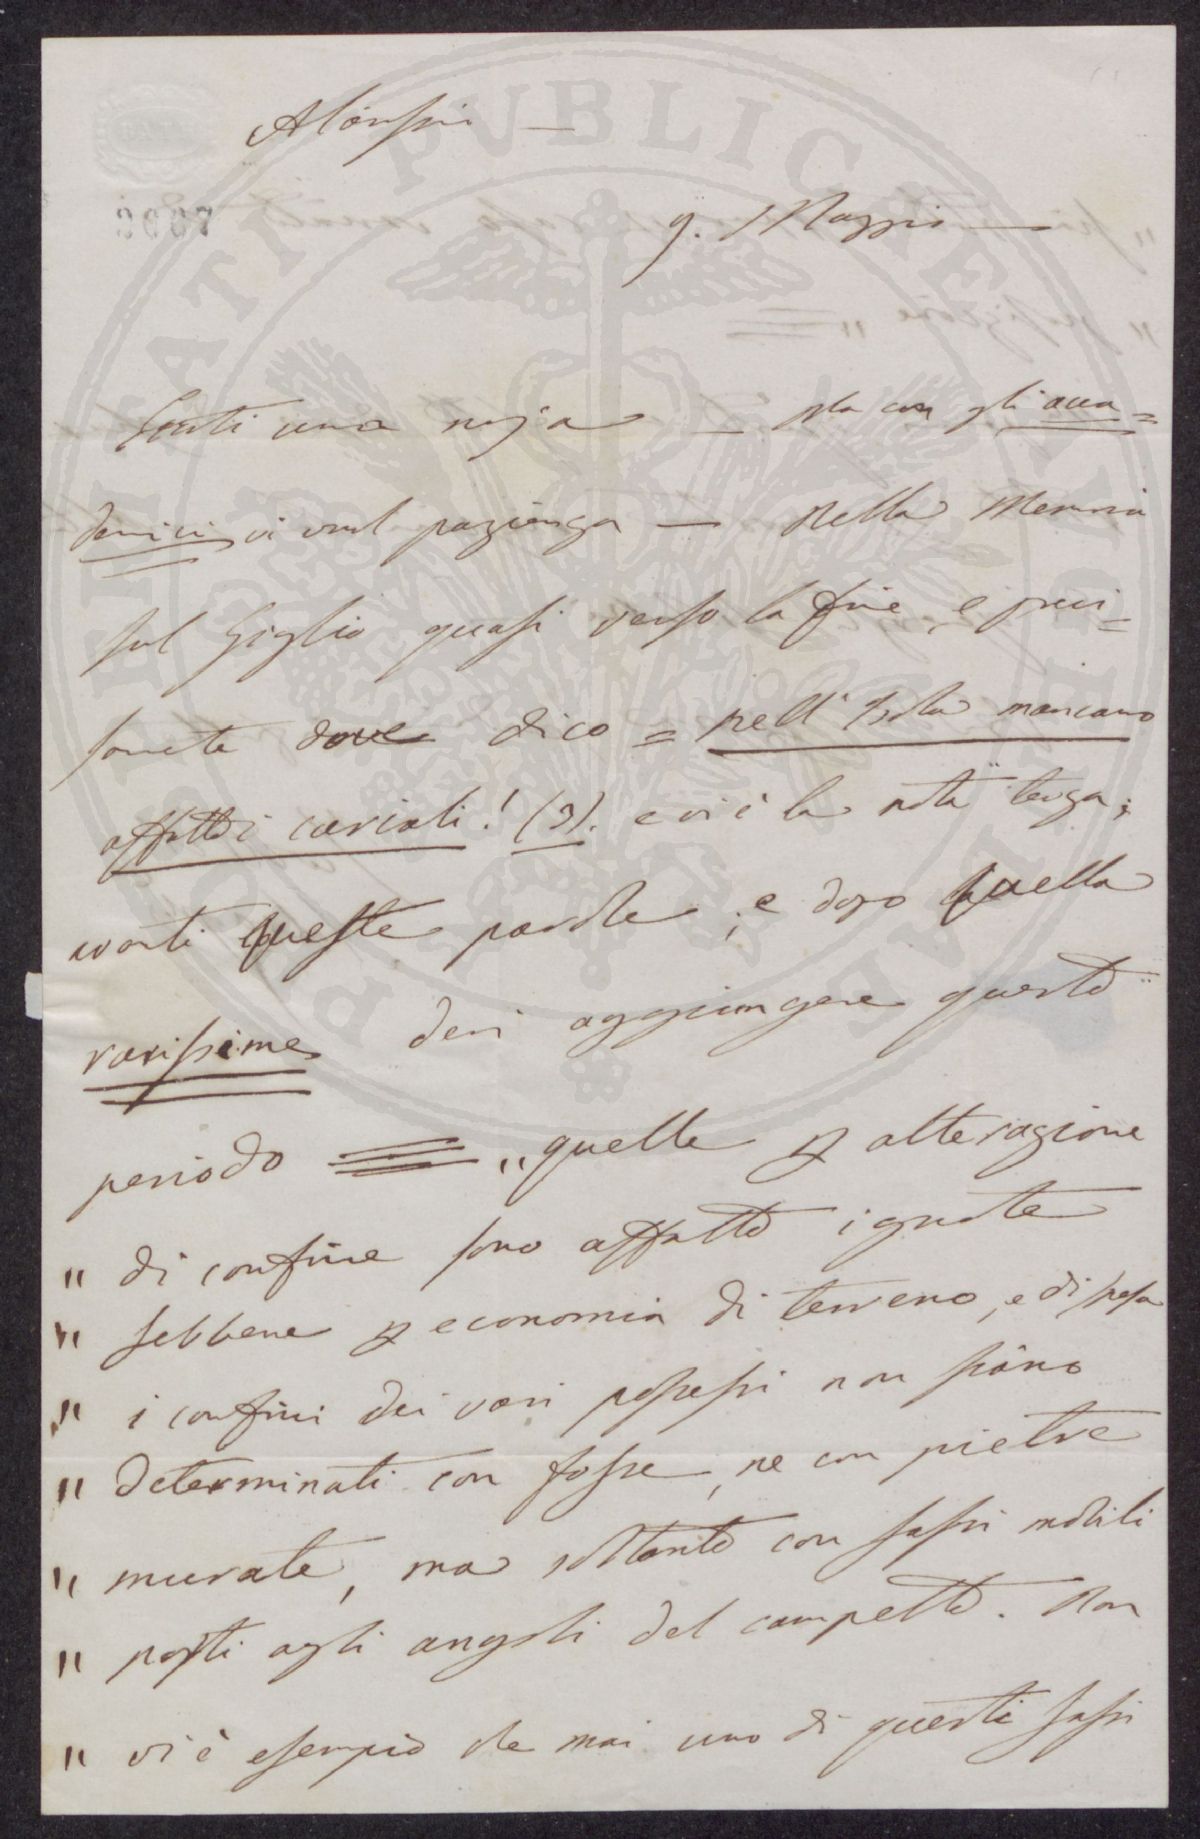 Alonssi —
9. Maggio —
Senti una noja — Ma con gli acca=
demici vi vuol pazienza — Nella Memoria
sul Giglio quasi verso la fine, e preci=
samente dove dico = nell' Isola mancano
affatto i coviali! (3). e vi è la nota terza;
conti queste parole, e dopo quella
rarissime devi aggiungere questo
periodo == „ quelle p alterazione
„ di confine sono affatto ignote
„ sebbene p economia di terreno, e di spesa
„ i confini dei vari possessi non siano
„ determinati con fosse, ne con pietre
„ murate, ma soltanto con sassi mobili
„ posti agli angoli del campetto. Non
„ vi è esempio che mai uno di questi sassi
POSTI PUBLICAE